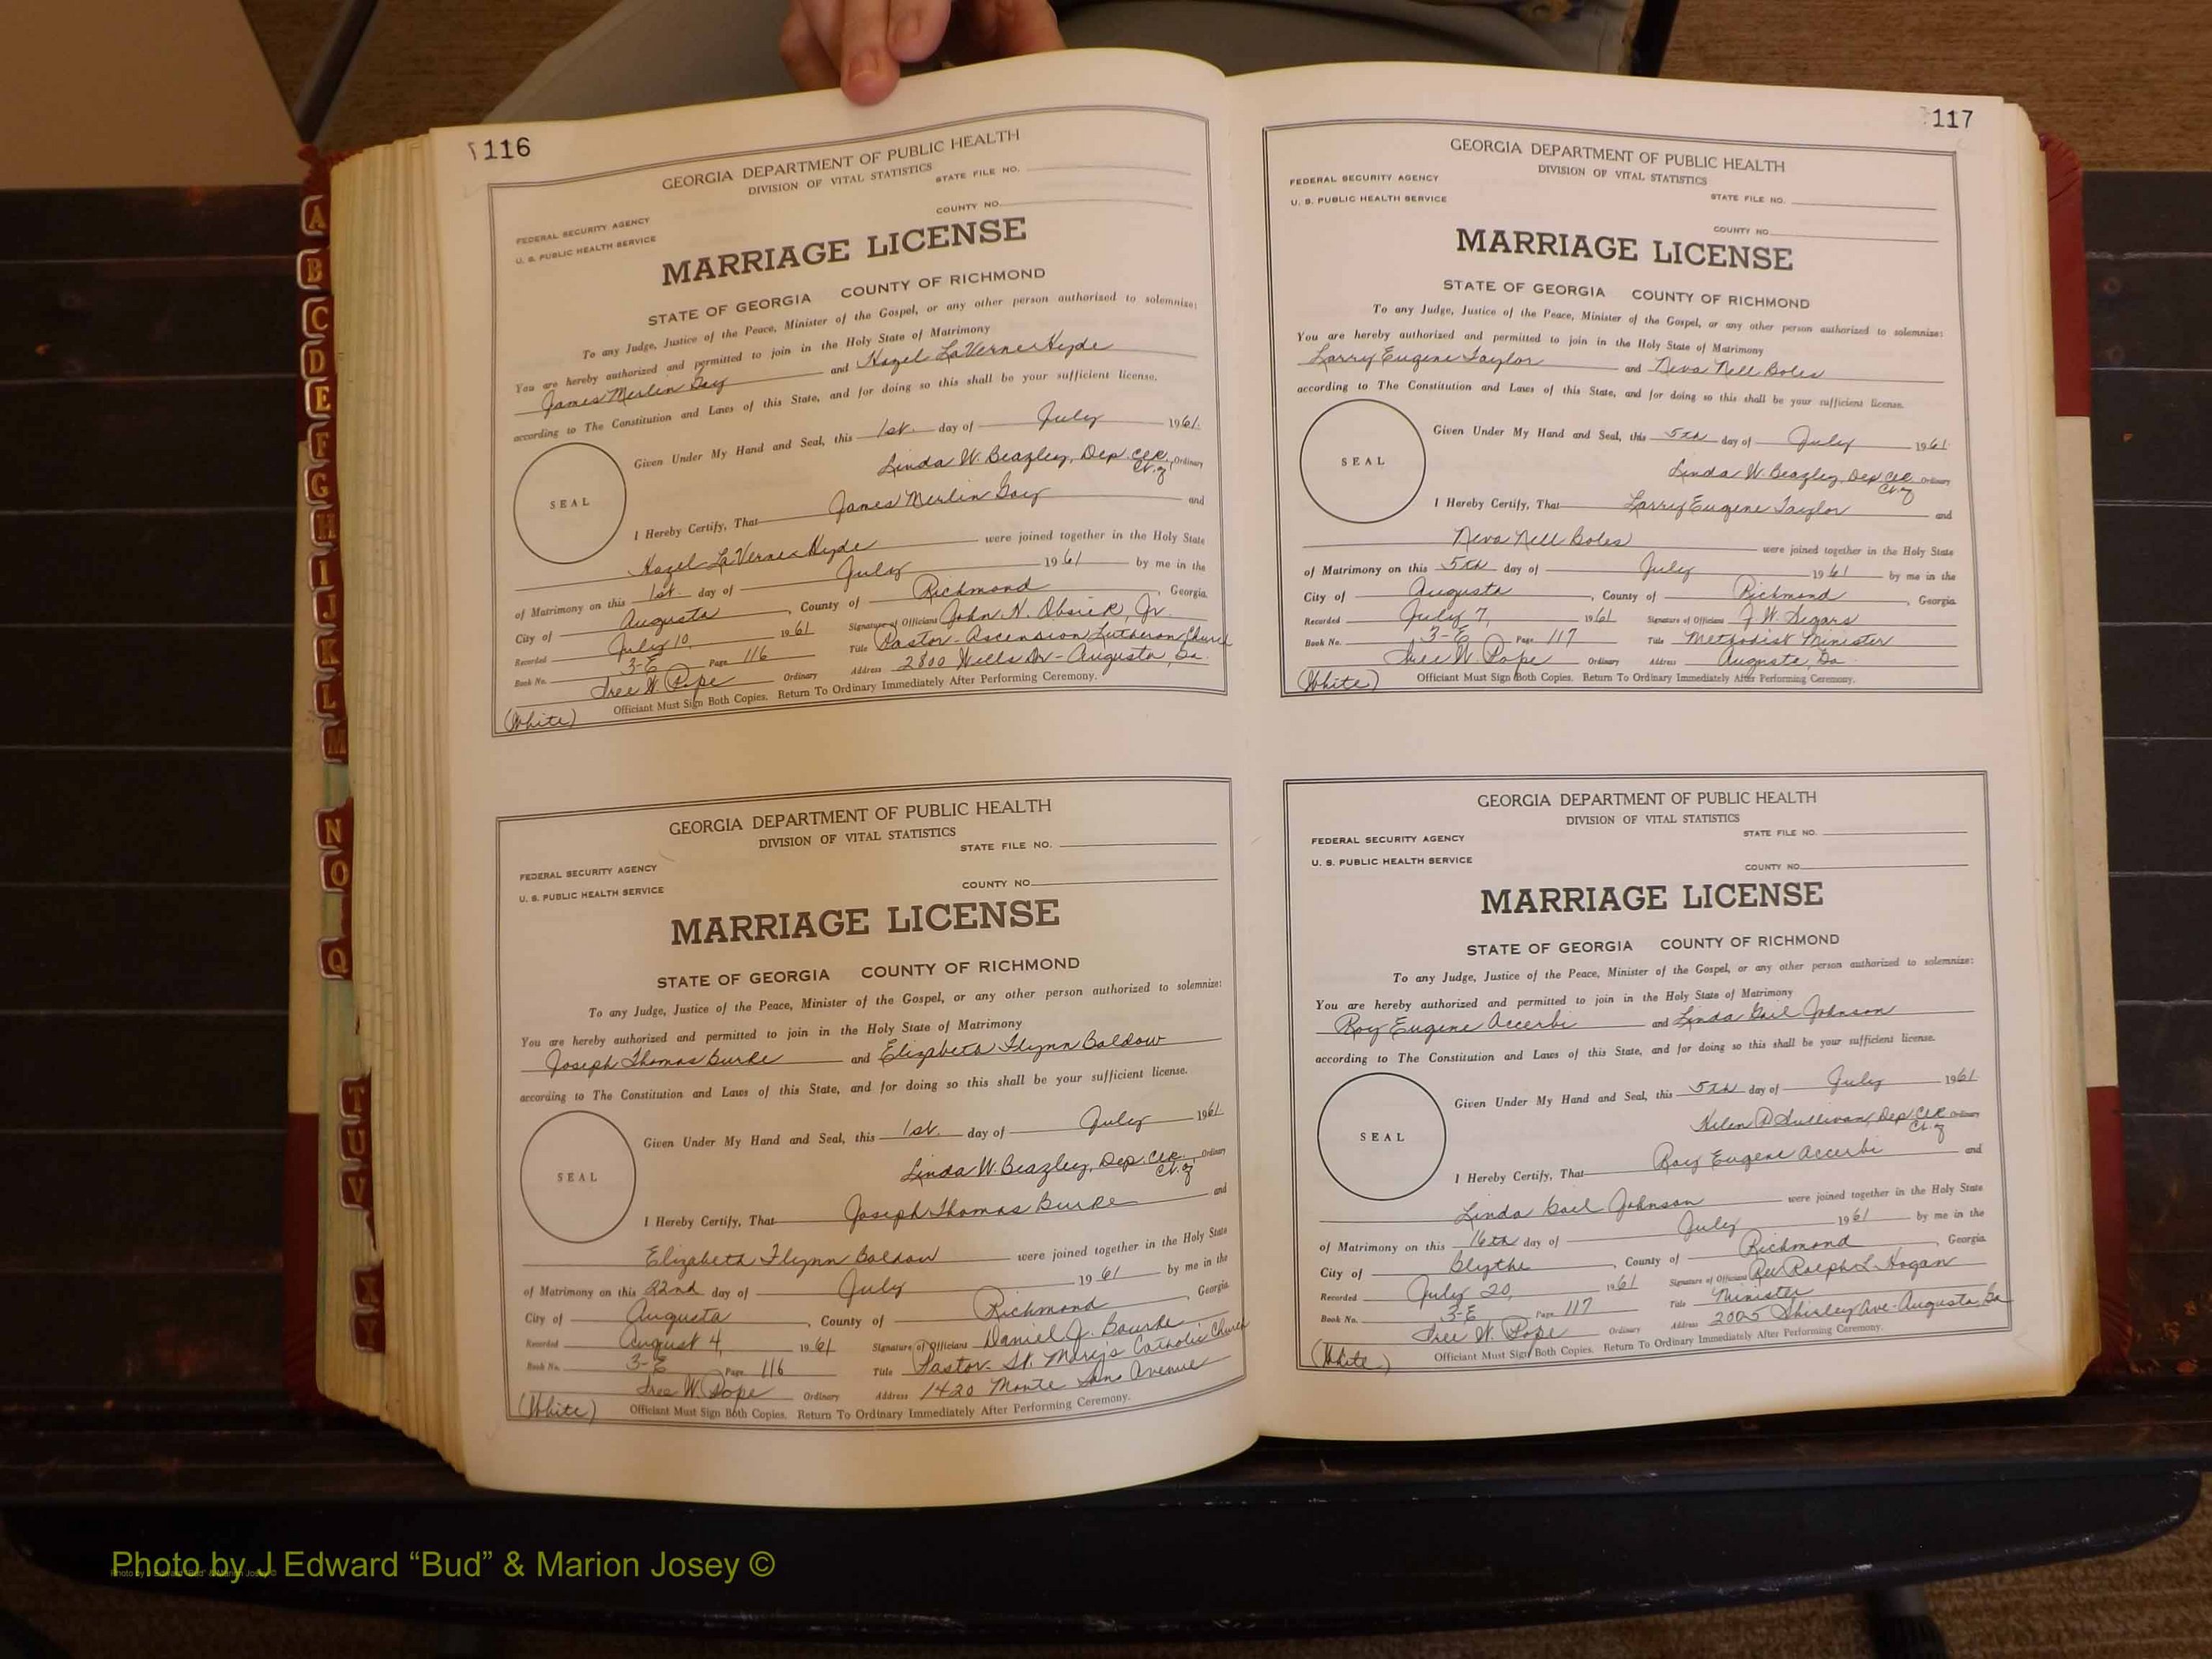 116
GEORGIA DEPARTMENT OF PUBLIC HEALTH
DIVISION OF VITAL STATISTICS
STATE FILE NO.
FEDERAL SECURITY AGENCY
COUNTY NO.
U. S. PUBLIC HEALTH SERVICE
MARRIAGE LICENSE
STATE OF GEORGIA COUNTY OF RICHMOND
To any Judge, Justice of the Peace, Minister of the Gospel, or any other person authorized to solemnize:
You are hereby authorized and permitted to join in the Holy State of Matrimony
James Merlin Gay and Hazel LaVerne Hyde
according to The Constitution and Laws of this State, and for doing so this shall be your sufficient license.
Given Under My Hand and Seal, this 1st. day of July 1961.
SEAL
Linda W. Beazley, Dep. Clk. Ordinary
Ct. of
I Hereby Certify, That James Merlin Gay and
Hazel LaVerne Hyde were joined together in the Holy State
of Matrimony on this 1st. day of July 1961 by me in the
City of Augusta, County of Richmond, Georgia.
Recorded July 10, 1961 Signature of Officiant John H.
Book No. 3-E Page 116 Title Pastor - Ascension Lutheran Church
Tree W. Pope Ordinary Address 2800 Wells Dr - Augusta, Ga.
(White) Officiant Must Sign Both Copies. Return To Ordinary Immediately After Performing Ceremony.
GEORGIA DEPARTMENT OF PUBLIC HEALTH
DIVISION OF VITAL STATISTICS
STATE FILE NO.
FEDERAL SECURITY AGENCY
COUNTY NO.
U. S. PUBLIC HEALTH SERVICE
MARRIAGE LICENSE
STATE OF GEORGIA COUNTY OF RICHMOND
To any Judge, Justice of the Peace, Minister of the Gospel, or any other person authorized to solemnize:
You are hereby authorized and permitted to join in the Holy State of Matrimony
Joseph Thomas Burke and Elizabeth Flynn Baldow
according to The Constitution and Laws of this State, and for doing so this shall be your sufficient license.
Given Under My Hand and Seal, this 1st. day of July 1961
SEAL
Linda W. Beazley, Dep. Clk. Ordinary
Ct. of
I Hereby Certify, That Joseph Thomas Burke and
Elizabeth Flynn Baldow were joined together in the Holy State
of Matrimony on this 22nd day of July 1961 by me in the
City of Augusta, County of Richmond, Georgia.
Recorded August 4, 1961 Signature of Officiant Daniel J. Bourke
Book No. 3-E Page 116 Title Pastor St. Mary's Catholic Church
Tree W. Pope Ordinary Address 1420 Monte Sano Avenue
(White) Officiant Must Sign Both Copies. Return To Ordinary Immediately After Performing Ceremony.
117
GEORGIA DEPARTMENT OF PUBLIC HEALTH
DIVISION OF VITAL STATISTICS
FEDERAL SECURITY AGENCY
STATE FILE NO.
U. S. PUBLIC HEALTH SERVICE
COUNTY NO.
MARRIAGE LICENSE
STATE OF GEORGIA COUNTY OF RICHMOND
To any Judge, Justice of the Peace, Minister of the Gospel, or any other person authorized to solemnize:
You are hereby authorized and permitted to join in the Holy State of Matrimony
Larry Eugene Taylor and Neva Nell Boles
according to The Constitution and Laws of this State, and for doing so this shall be your sufficient license.
Given Under My Hand and Seal, this 5th day of July 1961.
SEAL
Linda W. Beazley, Dep Clk. Ordinary
Ct. of
I Hereby Certify, That Larry Eugene Taylor and
Neva Nell Boles were joined together in the Holy State
of Matrimony on this 5th day of July 1961 by me in the
City of Augusta, County of Richmond, Georgia.
Recorded July 7, 1961 Signature of Officiant J. W. Segars
Book No. 3-E Page 117 Title Methodist Minister
Tree W. Pope Ordinary Address Augusta, Ga.
(White) Officiant Must Sign Both Copies. Return To Ordinary Immediately After Performing Ceremony.
GEORGIA DEPARTMENT OF PUBLIC HEALTH
DIVISION OF VITAL STATISTICS
FEDERAL SECURITY AGENCY
STATE FILE NO.
U. S. PUBLIC HEALTH SERVICE
COUNTY NO.
MARRIAGE LICENSE
STATE OF GEORGIA COUNTY OF RICHMOND
To any Judge, Justice of the Peace, Minister of the Gospel, or any other person authorized to solemnize:
You are hereby authorized and permitted to join in the Holy State of Matrimony
Roy Eugene Accerbi and Linda Gail Johnson
according to The Constitution and Laws of this State, and for doing so this shall be your sufficient license.
Given Under My Hand and Seal, this 5th day of July 1961
SEAL
Helen D. Sullivan, Dep. Clk. Ordinary
Ct. of
I Hereby Certify, That Roy Eugene Accerbi and
Linda Gail Johnson were joined together in the Holy State
of Matrimony on this 16th day of July 1961 by me in the
City of Blythe, County of Richmond, Georgia.
Recorded July 20, 1961 Signature of Officiant Rev Ralph L. Hogan
Book No. 3-E Page 117 Title Minister
Tree W. Pope Ordinary Address 2005 Shirley Ave. Augusta, Ga
(White) Officiant Must Sign Both Copies. Return To Ordinary Immediately After Performing Ceremony.
A
B
C
D
E
F
G
H
I
J
K
L
M
N
O
Q
T
U
V
X
Y
Photo by J Edward “Bud” & Marion Josey ©
Photo by J Edward "Bud" & Marion Josey ©